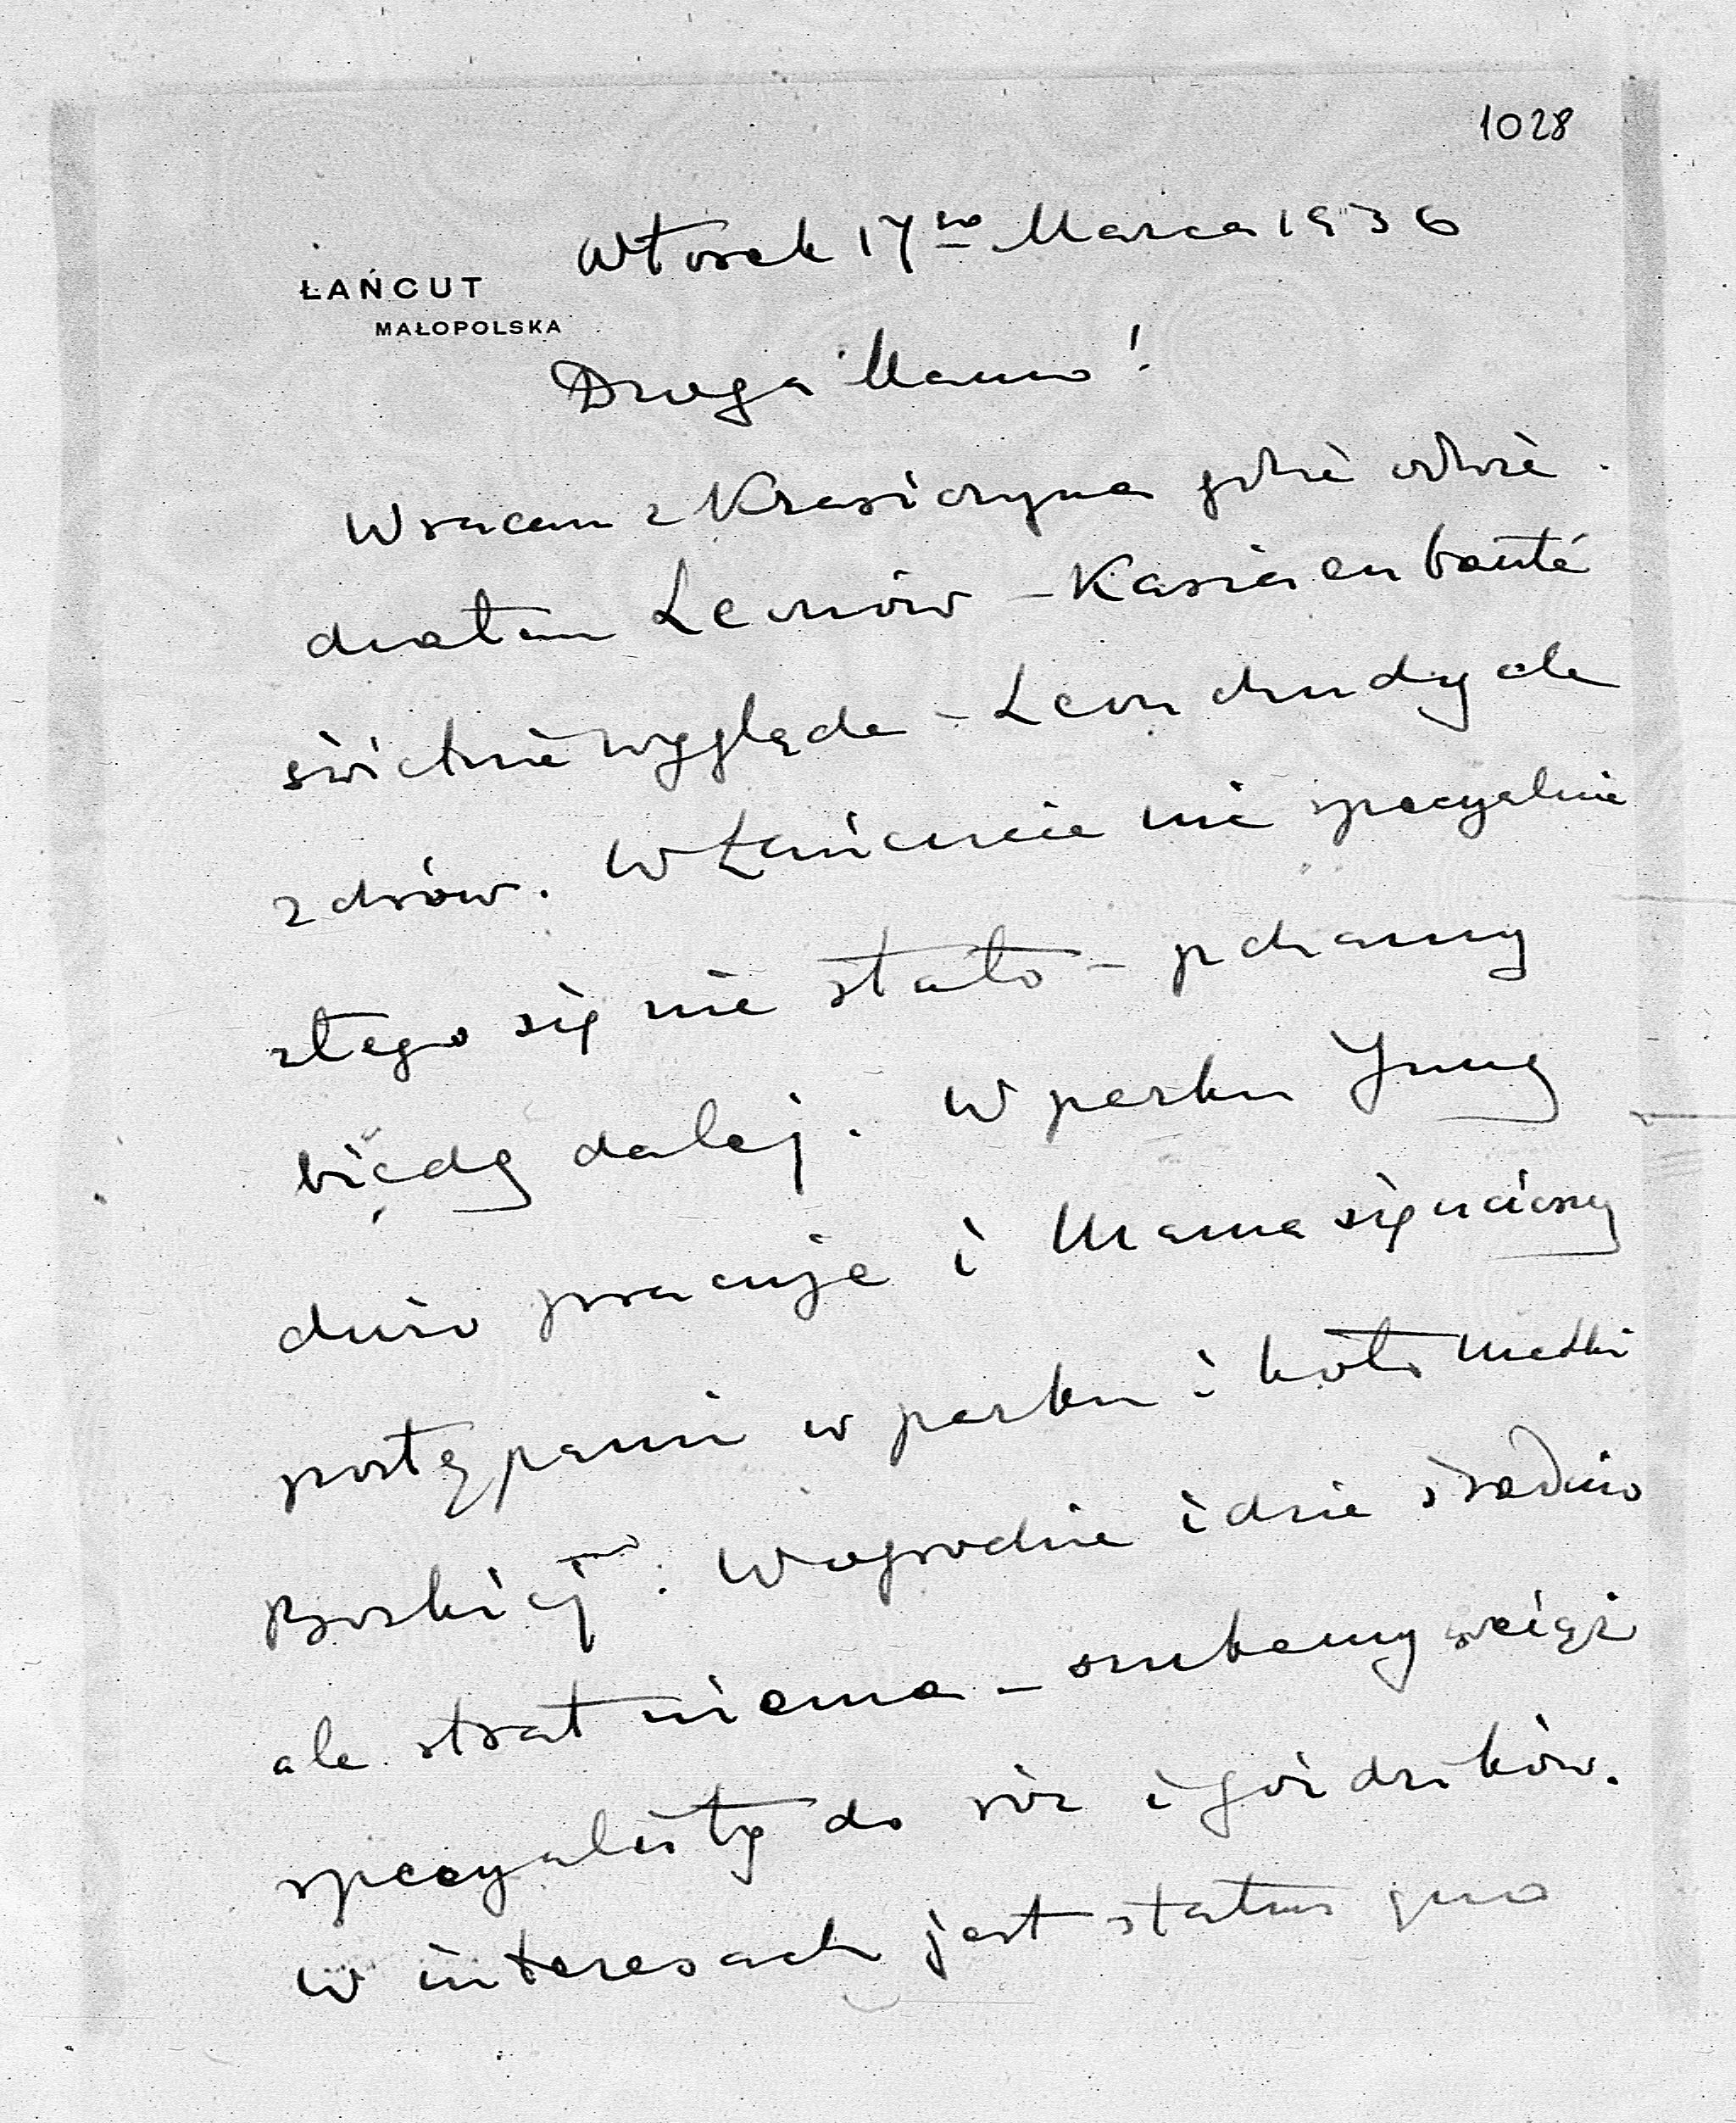 1028
Wtorek 17go Marca 1936
ŁAŃCUT
MAŁOPOLSKA
Droga Mamo!
Wracam z Krasiczyna gdzie odwie-
działem Leonów – Kasia en beauté
świetnie wygląda – Leon chudy ale
zdrów. W Łańcucie nic specyalnie
złego się nie stało – pchamy
biedę dalej. W parku Jung
dużo pracuje i Mama się ucieszy
postępami w parku i koło Matki
Boskiej. W ogrodzie idzie średnio
ale strat niema – szukamy wciąż
specyalisty do róż i goździków.
W interesach jest status quo